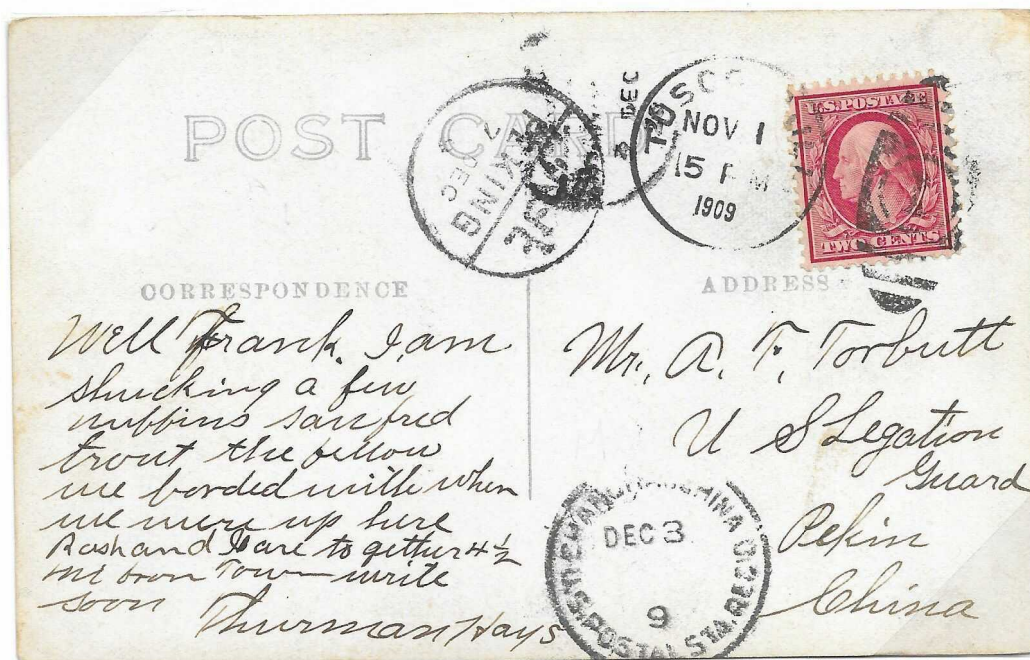 POST CARD
PEKING
7 DEC 9
DEC
TUSCO
NOV 1
15 PM
1909
U.S. POSTAGE
TWO CENTS
CORRESPONDENCE
Well Frank. I, am
shucking a few
nubbins
trout the fellow
we borded with when
we were up here
Rash and I are to gether 4½
mi from Town write
soon
Thurman Hays
ADDRESS
Mr. A. F. Torbutt
U S Legation
Guard
Pekin
China
SHANGHAI, CHINA
DEC 3
9
U.S. POSTAL STA. REC'D